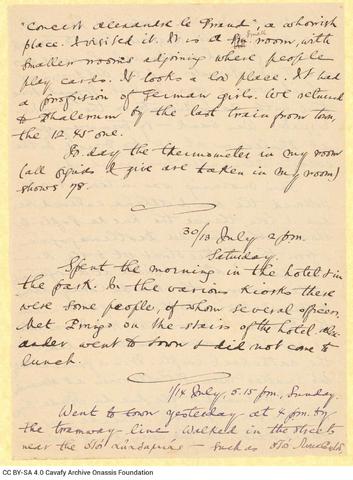 "Concert Alexandre le Grand", a whorish
place. I visited it. It is a small room, with
smaller rooms adjoining where people
play cards. It looks a low place. It had
a profusion of German girls. We returned
to Phalerum by the last train from town,
the 12.45 one.
To day the thermometer in my room
(all figures I give are taken in my room)
shows 78.
30/13 July 2 p.m.
Saturday.
Spent the morning in the hotel & in
the park. In the various Kiosks there
were some people, of whom several officers.
Met on the stairs of the hotel. Alex-
ander went to town & did not come to
lunch.
1/14 July, 5.15 p.m., Sunday.
Went to town yesterday at 4 p.m. by
the tramway-line. Walked in the streets
near the — such as
CC BY-SA 4.0 Cavafy Archive Onassis Foundation